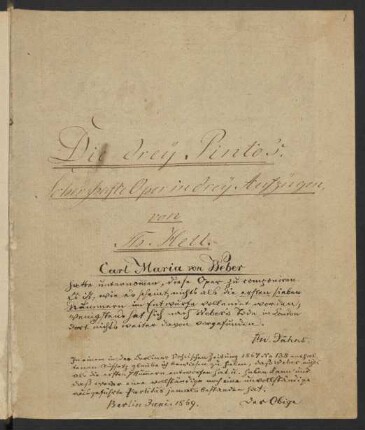 Die drey Pinto's.
Scherzhafte Oper in drey Aufzügen,
von
Th. Hell.
Carl Maria von Weber
hatte unternommen, diese Oper zu componiren.
Es ist, wie es scheint, nichts als die ersten sieben
Nummern im Entwurfe vollendet worden,
wenigstens hat sich nach Weber's Tode in dessen
dort nichts weiter davon vorgefunden.
F. W. Jähns.
In einem in der Berliner Vossischen Zeitung 1867 No 138 enthal-
tenen Aufsatz glaube ich bewiesen zu haben, daß Weber nicht
als die ersten 7 Nummern entworfen hat u. haben kann und
daß weder eine vollständige noch eine unvollständige
ausgeführte Partitur jemals bestanden hat.
Berlin Juni 1869. Der Obige